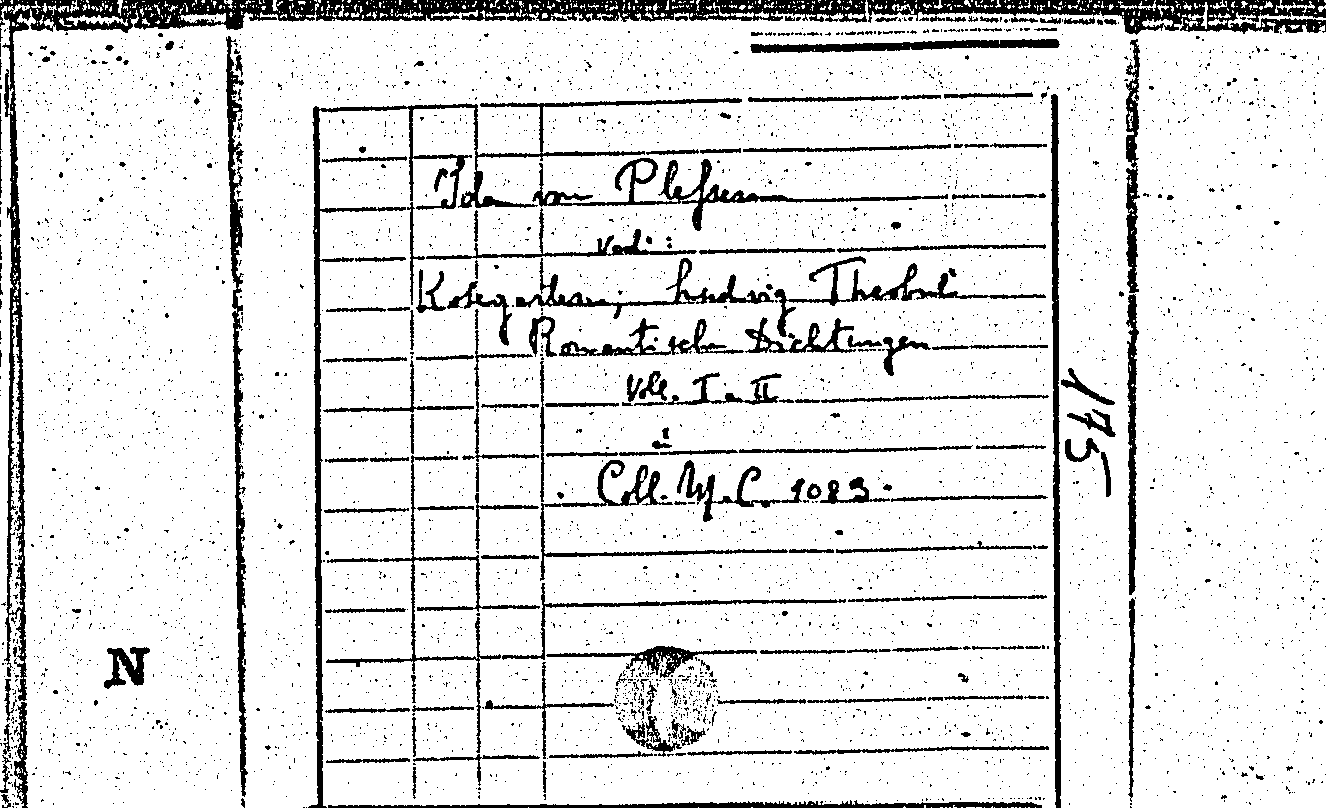 Ida von Plessen
Vedi:
Kosegarten, Ludwig Theobul
Romantische Dichtungen
Voll. I e II
in
Coll. M. C. 1083.
175
N